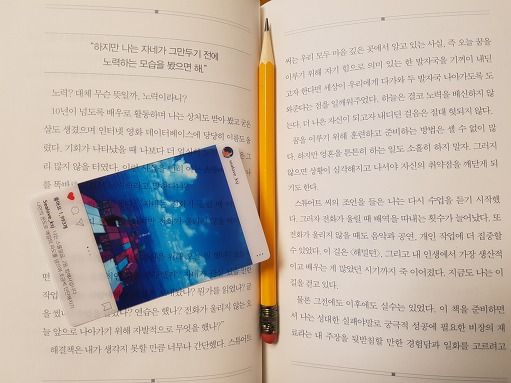 "하지만 나는 자네가 그만두기 전에
노력하는 모습을 봤으면 해."
노력? 대체 무슨 뜻일까, 노력이라니?
10년이 넘도록 배우로 활동하며 나는 상처도 받아 봤고 굳은
살도 생겼으며 인터넷 영화 데이터베이스에 당당히 이름도 올
렸다. 기회가 나타났을 때 나보다 더 열심히
리 많지 않을 터였다. 이런
를 똑바로
좋아요 1,993개
Seashore_kyj
작업
을 빌
했는가? 연습은 했나? 전화가 울리지 않는 오
늘 앞으로 나아가기 위해 자발적으로 무엇을 했나?"
해결책은 내가 생각지 못할 만큼 너무나 간단했다. 스튜어트
씨는 우리 모두 마음 깊은 곳에서 알고 있는 사실, 즉 오늘 꿈을
이루기 위해 자기 힘으로 의미 있는 한 발자국을 기꺼이 내딛
고자 한다면 세상이 우리에게 다가와 두 발자국 나아가도록 도
와준다는 점을 일깨워주었다. 하늘은 결코 노력을 배신하지 않
는다. 더 나은 자신이 되고자 내디딘 걸음은 절대 헛되지 않다.
꿈을 이루기 위해 훈련하고 준비하는 방법은 셀 수 없이 많
다. 하지만 영혼을 튼튼히 하는 일도 소홀히 하지 말자. 그러지
않으면 상황이 심각해지고 나서야 자신의 취약점을 깨닫게 되
기도 한다.
스튜어트 씨의 조언을 들은 나는 다시 수업을 듣기 시작했
다. 그러자 전화가 울릴 때 배역을 따내는 횟수가 늘어났다. 또
전화가 울리지 않을 때도 음악과 공연, 개인 작업에 더 집중할
수 있었다. 이 길은 <해밀턴>, 그리고 내 인생에서 가장 생산적
이고 배우는 게 많았던 시기까지 죽 이어졌다. 지금도 나는 이
길을 걷고 있다.
물론 그전에도 이후에도 실수는 있었다. 이 책을 준비하면
서 나는 성대한 실패야말로 궁극적 성공에 필요한 비장의 재
료라는 내 주장을 뒷받침할 만한 경험담과 일화를 고르려고